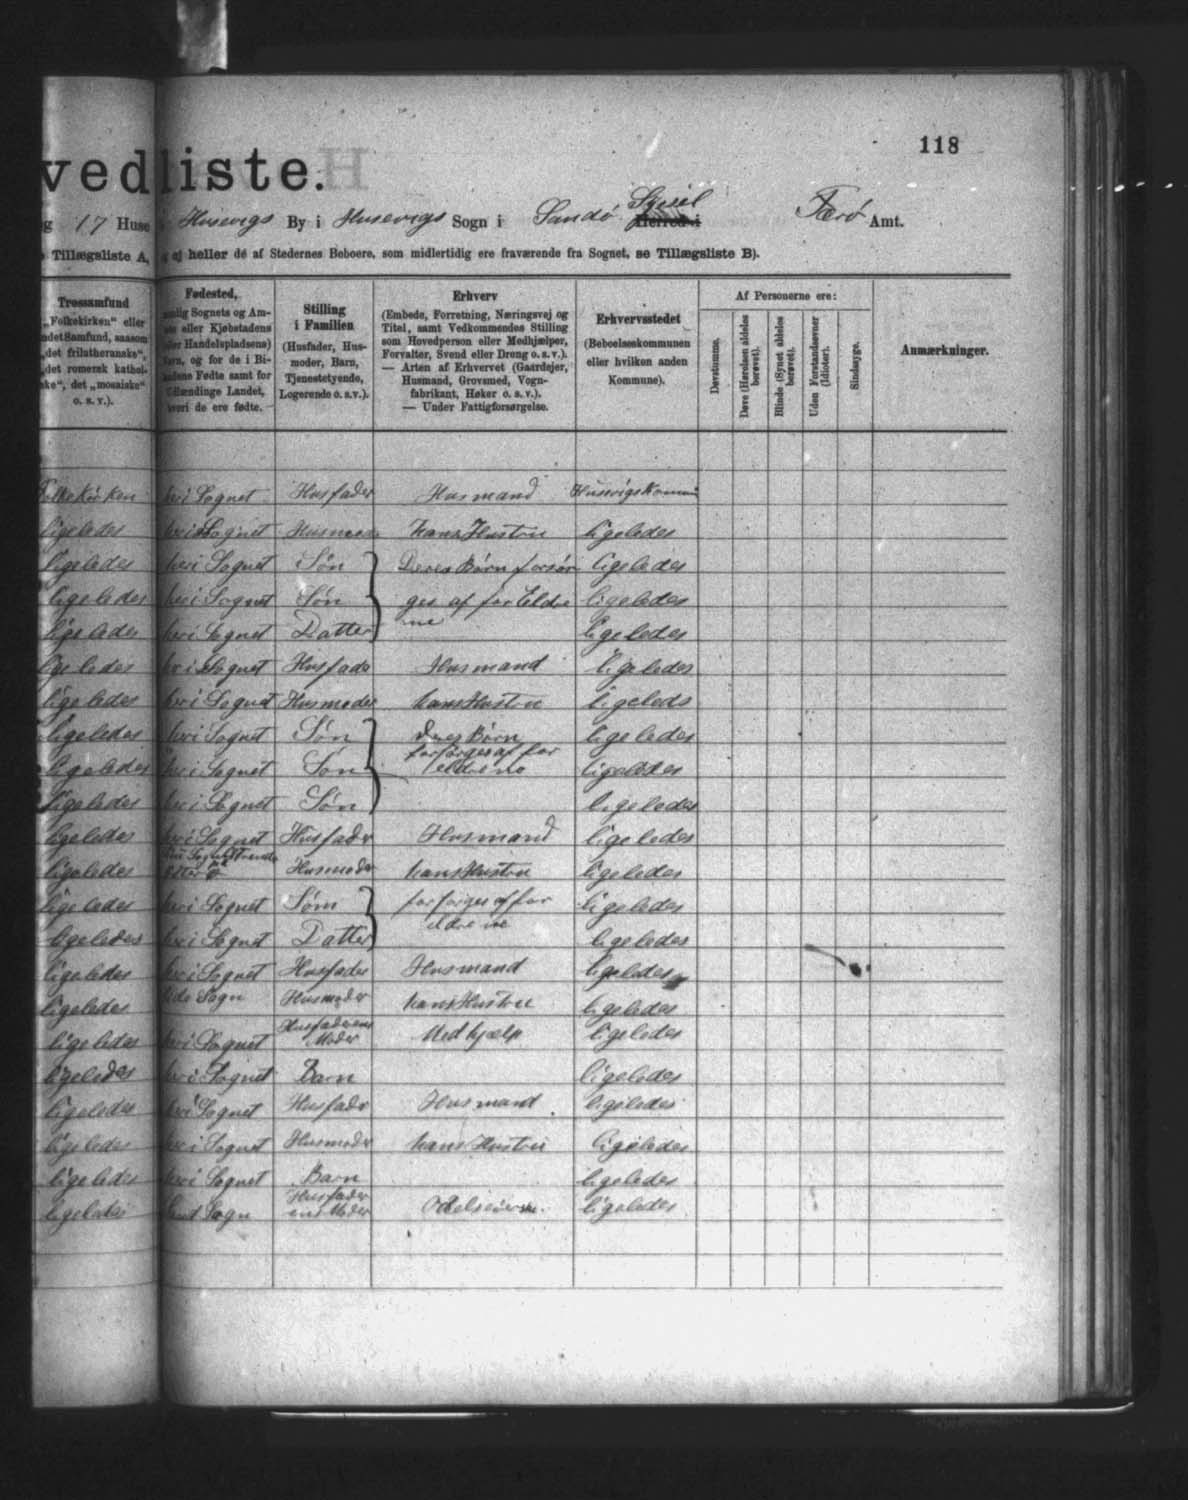 118
vedliste.
g 17 Huse i Husevigs By i Husevigs Sogn i Sandø Syssel Herred i Færø Amt.
Tillægsliste A, og ej heller de af Stedernes Beboere, som midlertidig ere fraværende fra Sognet, se Tillægsliste B).
Trossamfund
„Folkekirken“ eller
ndet Samfund, saasom
„det frilutheranske“,
„det romersk kathol-
ske“, det „mosaiske“
o. s. v.).
Fødested,
nlig Sognets og Am-
eller Kjøbstadens
ler Handelspladsens)
avn, og for de i Bi-
andene Fødte samt for
Udlændinge Landet,
hvori de ere fødte.
Stilling
i Familien
(Husfader, Hus-
moder, Barn,
Tjenestetyende,
Logerende o.s.v.).
Erhverv
(Embede, Forretning, Næringsvej og
Titel, samt Vedkommendes Stilling
som Hovedperson eller Medhjælper,
Forvalter, Svend eller Dreng o. s. v.).
— Arten af Erhvervet (Gaardejer,
Husmand, Grovsmed, Vogn-
fabrikant, Høker o. s. v.).
— Under Fattigforsørgelse.
Erhvervsstedet
(Beboelseskommunen
eller hvilken anden
Kommune).
Af Personerne ere:
Døvstumme.
Døve (Hørelsen aldeles
berøvet).
Blinde (Synet aldeles
berøvet).
Uden Forstandsevner
(Idioter).
Sindssyge.
Anmærkninger.
Folkekirken heri Sognet Husfader Husmand Husevigs Kommu
ligeledes heri Sognet Husmoder hans Hustru ligeledes
ligeledes heri Sognet Søn Deres Børn forsør ligeledes
ligeledes heri Sognet Søn ges af for Eldre ligeledes
ligeledes heri Sognet Datter ne ligeledes
ligeledes heri Sognet Husfade Husmand ligeledes
ligeledes heri Sognet Husmoder hans Hustru ligeleds
ligeledes heri Sognet Søn Deres Børn ligeledes
forsørges af for
ligeledes heri Sognet Søn eldrene ligeledes
ligeledes heri Sognet Søn ligeledes
ligeledes heri Sognet Husfader Husmand ligeledes
ligeledes Husmoder hans Hustru ligeledes
ligeledes heri Sognet Søm forsørges af for ligeledes
ligeledes heri Sognet Datter eldrene ligeledes
ligeledes heri Sognet Husfader Husmand ligeledes
ligeledes Sogn Husmoder hans Hustru ligeledes
ligeledes heri Sognet Husfaderens Moder Medhjælp ligeledes
ligeledes heri Sognet Barn ligeledes
ligeledes heri Sognet Husfader Husmand ligeledes
ligeledes heri Sognet Husmoder hans Hustru ligeledes
ligeledes heri Sognet Barn ligeledes
ligeledes Sand Sogn Husfader ens Moder ligeledes